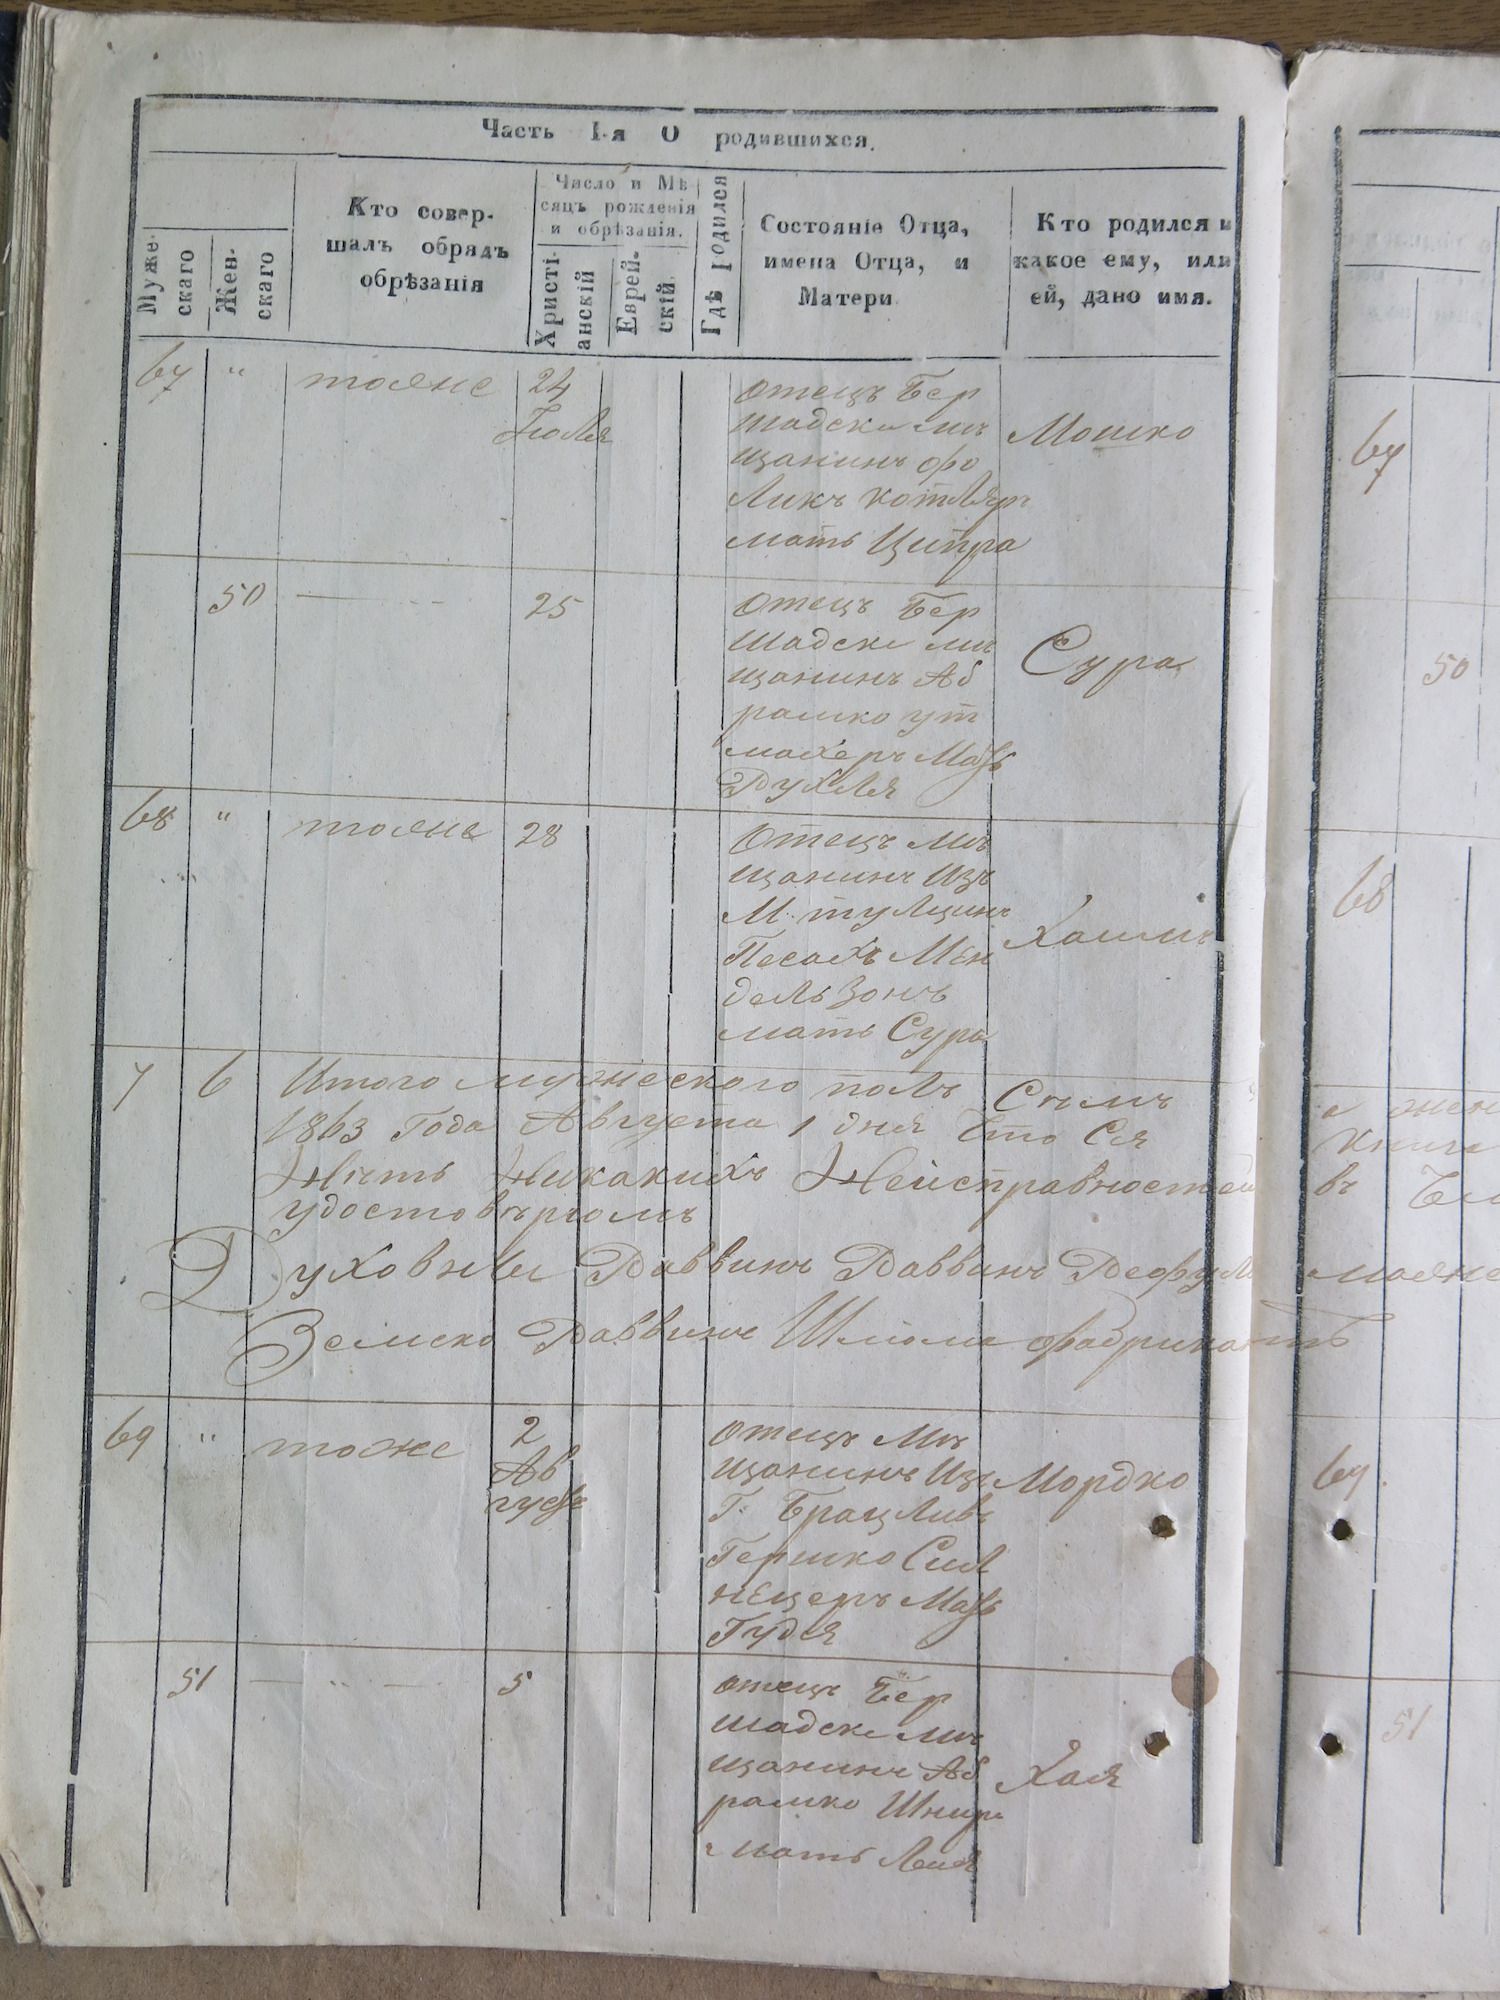 Часть I-я О родившихся.
Муже-
скаго
Жен-
скаго
Кто совер-
шалъ обрядъ
обрѣзанія
Число и Мѣ-
сяцъ рожденія
и обрѣзанія.
Христі-
анскій
Еврей-
скій
Гдѣ родился
Состояніе Отца,
имена Отца, и
Матери
Кто родился и
какое ему, или
ей, дано имя.
67 " тоже 24
Іюля
Отецъ Бер
шадски мѣ
щанинъ Фо
ликъ Котляръ
мать Ципра
Мошко
50 25
Отецъ Бер
шадски мѣ
щанинъ Аб
рамко Ут
махеръ Мать
Рухля
Сура
68 " тоже 28
Отецъ мѣ
щанинъ Изъ
М. Тулчинъ
Песахъ Мен
дельзонъ
мать Сура
Хаимъ
7 6 Итого мужеского полъ Семъ
1863 Года Августа 1 дня Что Сея
Нѣтъ Никакихъ Неисправностей
удостовѣряемъ
Духовны Раввинъ Раввинъ
Земско Раввинъ Шлома Фабрикантъ
69 " тоже 2
Ав
густа
Отецъ Мѣ
щанинъ Изъ
Г. Брацлавъ
Гершко Сил
нецеръ Мать
Гудя
Мордко
51 5
Отецъ Бер
шадски мѣ
щанинъ Аб
рамко Шнир
мать Лея
Хая
67
50
68
книга
въ
69.
51